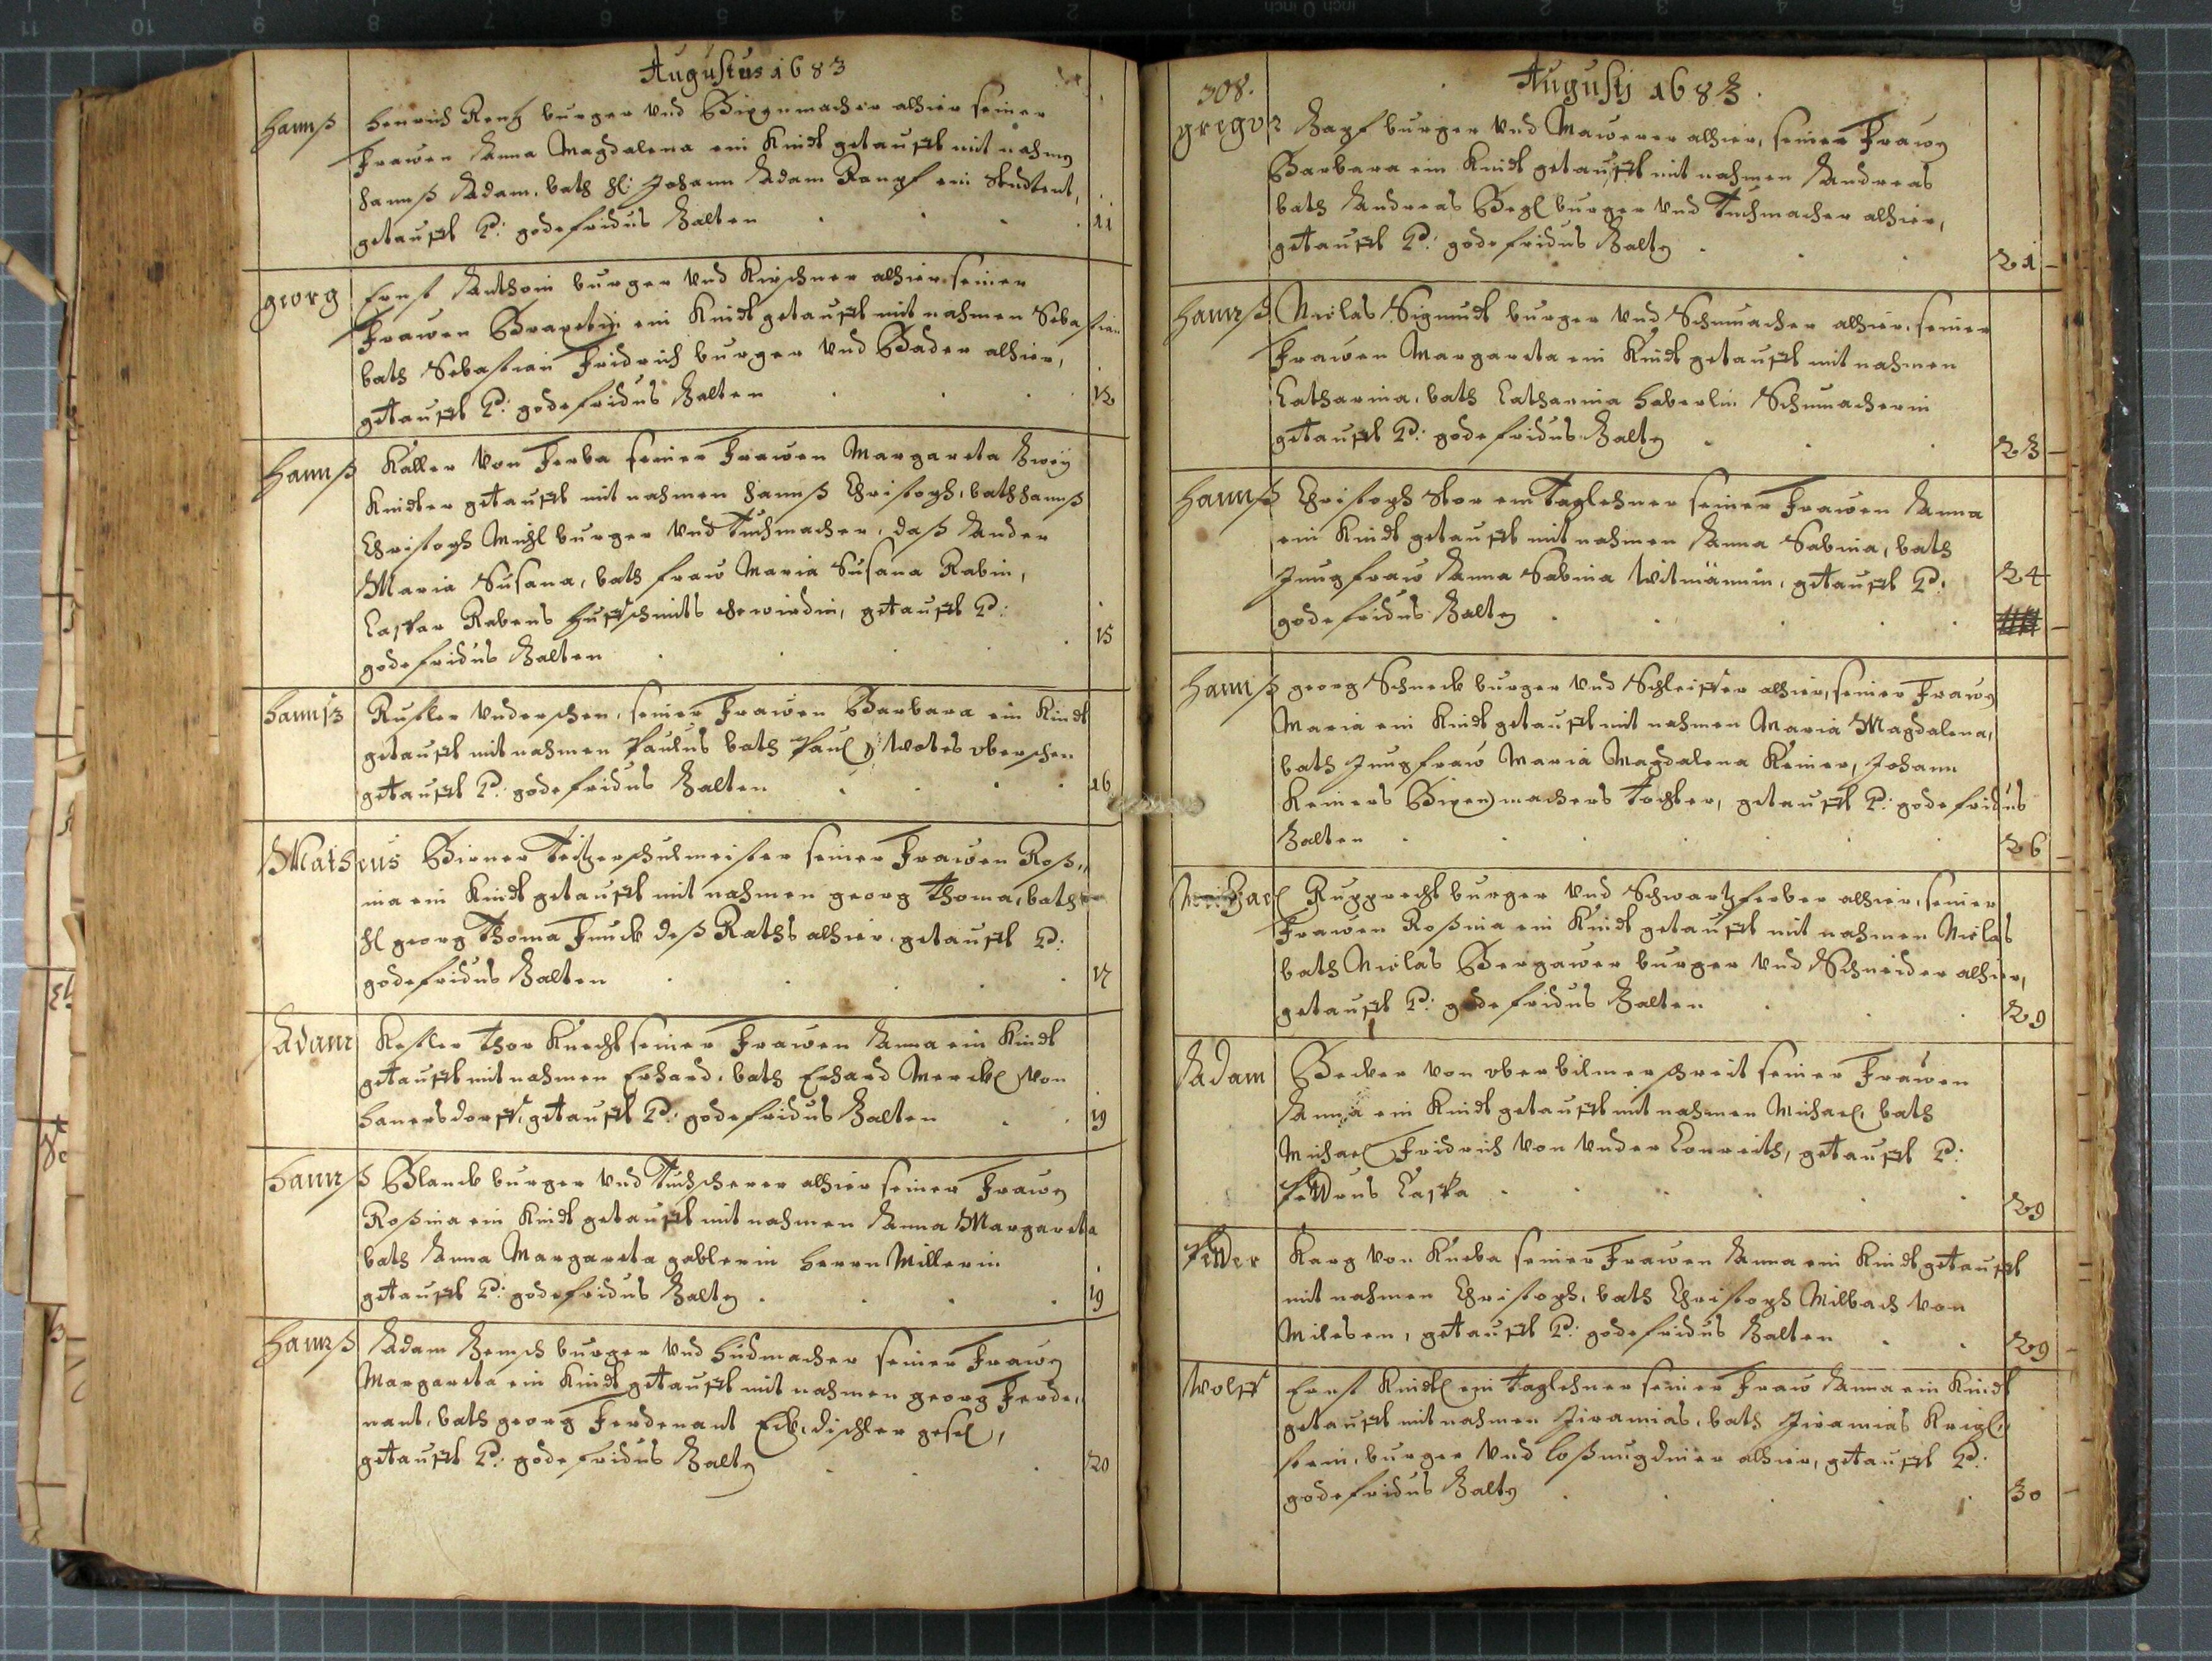 Augustus 1683
Hannß Henrich Rentz burger vnd Bixenmacher alhier seiner
Frawen Anna Magdalena ein Kindt getaufft mit nahmen
Hannß Adam, bath H: Johann Adam ein Studtent,
getaufft P: godefridus Balten 11
georg Ernst Anthoni burger vnd Kirschner alhier seiner
Frawen ein Kindt getaufft mit nahmen Sebastian
bath Sebastian Fridrich burger vnd Bader alhier,
getaufft P: godefridus Balten 12
Hannß Kaller von Ferba seiner Frawen Margareta Zwey
Kindter getaufft mit nahmen Hannß Christoph, bath Hannß
Christoph Michl burger vnd Tuchmacher, daß Ander
Maria Susana, bath fraw Maria Susana Rabin,
Caspar Rabens Huffschmits ehewirdin, getaufft P:
godefridus Balten 15
Hannß seiner Frawen Barbara ein Kindt
getaufft mit nahmen Paulus bath Paul
getaufft P: godefridus Balten 16
Matheus Birner seiner Frawen Roß,,
ina ein Kindt getaufft mit nahmen georg Thoma, bath
H georg Thoma Funck deß Raths alhier, getaufft P:
godefridus Balten 17
Adam Kesler Thor Knecht seiner Frawen Anna ein Kindt
getaufft mit nahmen Erhard, bath Erhard Merckl von
getaufft P: godefridus Balten 19
Hannß Blanck burger vnd Tuchscherer alhier seiner Frawen
Roßina ein Kindt getaufft mit nahmen Anna Margareta
bath Anna Margareta gablerin Herrn Millerin
getaufft P: godefridus Balten 19
Hannß Adam burger vnd Hudmacher seiner Frawen
Margareta ein Kindt getaufft mit nahmen georg Ferde,,
nant, bath georg Ferdenant dischler gesel,
getaufft P: godefridus Balten 20
308. Augustj 1683.
gregor Zapf burger vnd Mawerer alhier, seiner Frawen
Barbara ein Kindt getaufft mit nahmen Andreas
bath Andreas burger vnd Tuchmacher alhier,
getaufft P: godefridus Balten 21
Hannß Niclas Sigmudt burger vnd Schumacher alhier, seiner
Frawen Margareta ein Kindt getaufft mit nahmen
Catharina, bath Catharina Haberlin Schumacherin
getaufft P: godefridus Balten 23
Hannß Christoph Stor ein Taglehner seiner Frawen Anna
ein Kindt getaufft mit nahmen Anna Sabina, bath
Jungfraw Anna Sabina Witmännin, getaufft P: 24
godefridus Balten
Hannß georg Schneck burger vnd Schleiffer alhier, seiner Frawen
Maria ein Kindt getaufft mit nahmen Maria Magdalena,
bath Jungfraw Maria Magdalena Keiner, Johann
Keiners Bixenmachers Tochter, getaufft P: godefridus
Balten 26
Michael Rupprecht burger vnd Schwartzferber alhier, seiner
Frawen Roßina ein Kindt getaufft mit nahmen Niclas
bath Niclas Bergawer burger vnd Schneider alhier,
getaufft P: godefridus Balten 29
Adam Becker von seiner Frawen
Anna ein Kindt getaufft mit nahmen Michael, bath
Michael Fridrich von vnder getaufft P:
Pettrus Caspa 29
Petter Karg von seiner Frawen Anna ein Kindt getaufft
mit nahmen Christoph, bath Christoph Milbach von
getaufft P: godefridus Balten 29
Wolff Ernst Kindtl ein Taglehner seiner Fraw Anna ein Kindt
getaufft mit nahmen Jiramias, bath Jiramias Krigl,,
stein, burger vnd alhier, getaufft P:
godefridus Balten 30